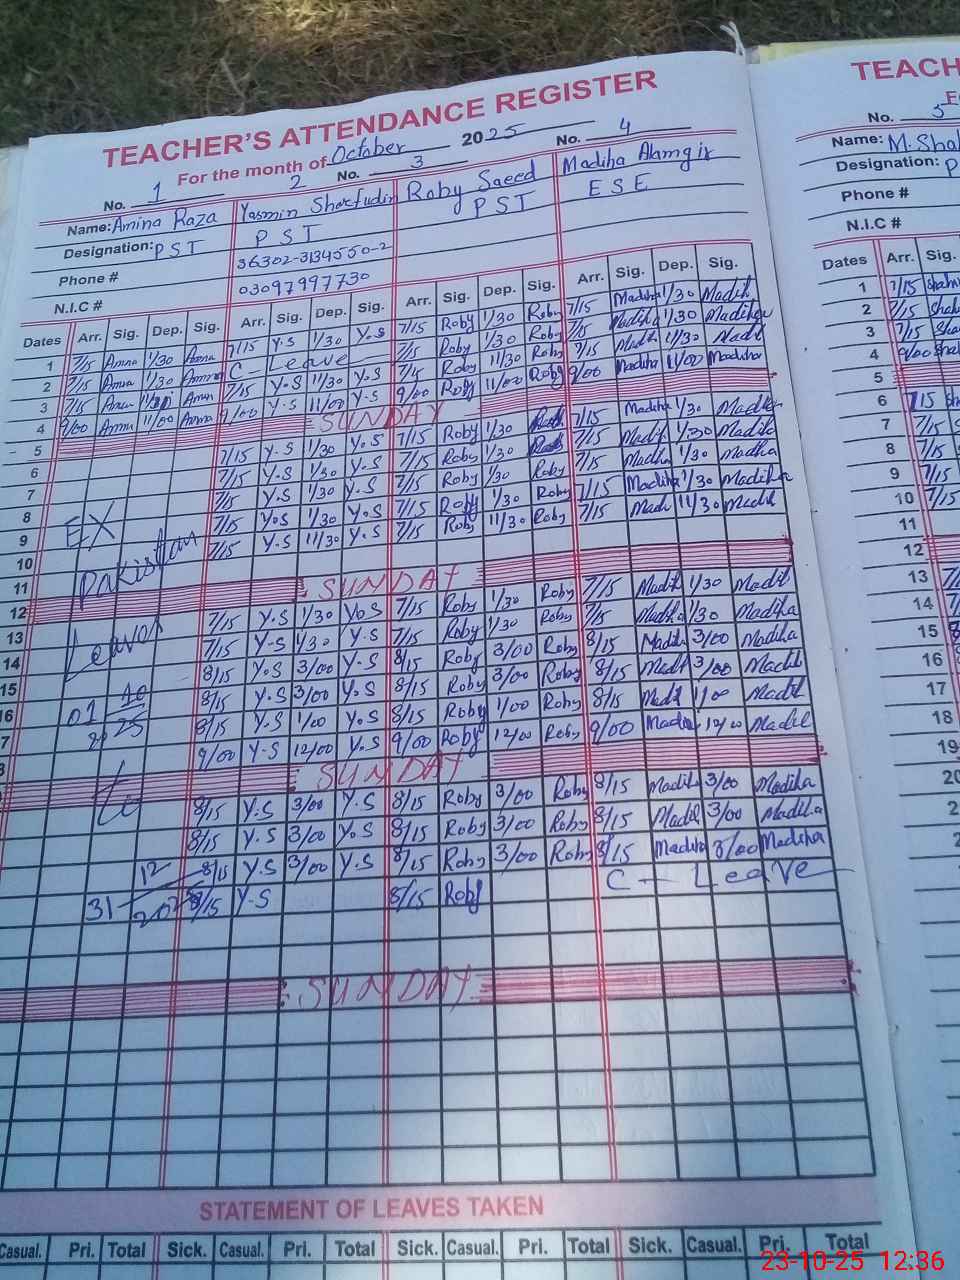 TEACHER'S ATTENDANCE REGISTER
For the month of October 2025
No. 1 2 No. 3 No. 4
Name: Amina Raza Yasmin Sharfudin Roby Saeed Madiha Alamgir
Designation: PST PST PST ESE
Phone # 36302-3134550-2
N.I.C # 03097997730
Dates Arr. Sig. Dep. Sig. Arr. Sig. Dep. Sig. Arr. Sig. Dep. Sig. Arr. Sig. Dep. Sig.
1 7/15 Amna 1/30 Amna 7/15 Y.S 1/30 Y.S 7/15 Roby 1/30 Roby 7/15 Madiha 1/30 Madih
2 7/15 Amna 1/30 C - Leave 7/15 Roby 1/30 Roby 7/15 Madiha 1/30 Madiha
3 7/15 7/15 Y.S 11/30 Y.S 7/15 Roby 11/30 Roby 7/15 Madih 11/30 Madil
4 9/00 Amna 11/00 Amna 9/00 Y.S 11/00 Y.S 9/00 Roby 11/00 Roby 9/00 Madiha 11/00 Madiha
5 SUNDAY
6 7/15 Y.S 1/30 Y.S 7/15 Roby 1/30 7/15 Madiha 1/30 Madiha
7 7/15 Y.S 1/30 Y.S 7/15 Roby 1/30 7/15 Madih 1/30 Madih
8 7/15 Y.S 1/30 Y.S 7/15 Roby 1/30 Roby 7/15 Madha 1/30 Madha
9 EX 7/15 Y.S 1/30 Y.S 7/15 Roby 1/30 Roby 7/15 Madiha 1/30 Madiha
10 Pakistan 7/15 Y.S 11/30 Y.S 7/15 Roby 11/30 Roby 7/15 Madi 11/30 Madil
11
12 SUNDAY
13 Leaves 7/15 Y.S 1/30 Y.S 7/15 Roby 1/30 Roby 7/15 Madih 1/30 Madil
14 7/15 Y.S 1/30 Y.S 7/15 Roby 1/30 Roby 7/15 Madiha 1/30 Madiha
15 8/15 Y.S 3/00 Y.S 8/15 Roby 3/00 Roby 8/15 Madih 3/00 Madiha
16 01 10 2025 8/15 Y.S 3/00 Y.S 8/15 Roby 3/00 Roby 8/15 Madi 3/00 Madil
7 8/15 Y.S 1/00 Y.S 8/15 Roby 1/00 Roby 8/15 Madil 1/00 Madil
9/00 Y.S 12/00 Y.S 9/00 Roby 12/00 Roby 9/00 Madil 12/00 Madil
SUNDAY
to 8/15 Y.S 3/00 Y.S 8/15 Roby 3/00 Roby 8/15 Madih 3/00 Madiha
8/15 Y.S 3/00 Y.S 8/15 Roby 3/00 Roby 8/15 Madil 3/00 Madiha
31 12 8/15 Y.S 3/00 Y.S 8/15 Roby 3/00 Roby 8/15 Madiha 3/00 Madiha
8/15 Y.S 8/15 Roby C - Leave
SUNDAY
STATEMENT OF LEAVES TAKEN
Casual. Pri. Total Sick. Casual. Pri. Total Sick. Casual. Pri. Total Sick. Casual. Pri. Total
TEACH
No. 5
Name: M. Sha
Designation: P
Phone #
N.I.C #
Dates Arr. Sig.
1 7/15
2 7/15
3 7/15
4 9/00
5
6 7/15
7 7/15
8 7/15
9 7/15
10 7/15
11
12
13
14
15
16
17
18
19
20
23-10-25 12:36